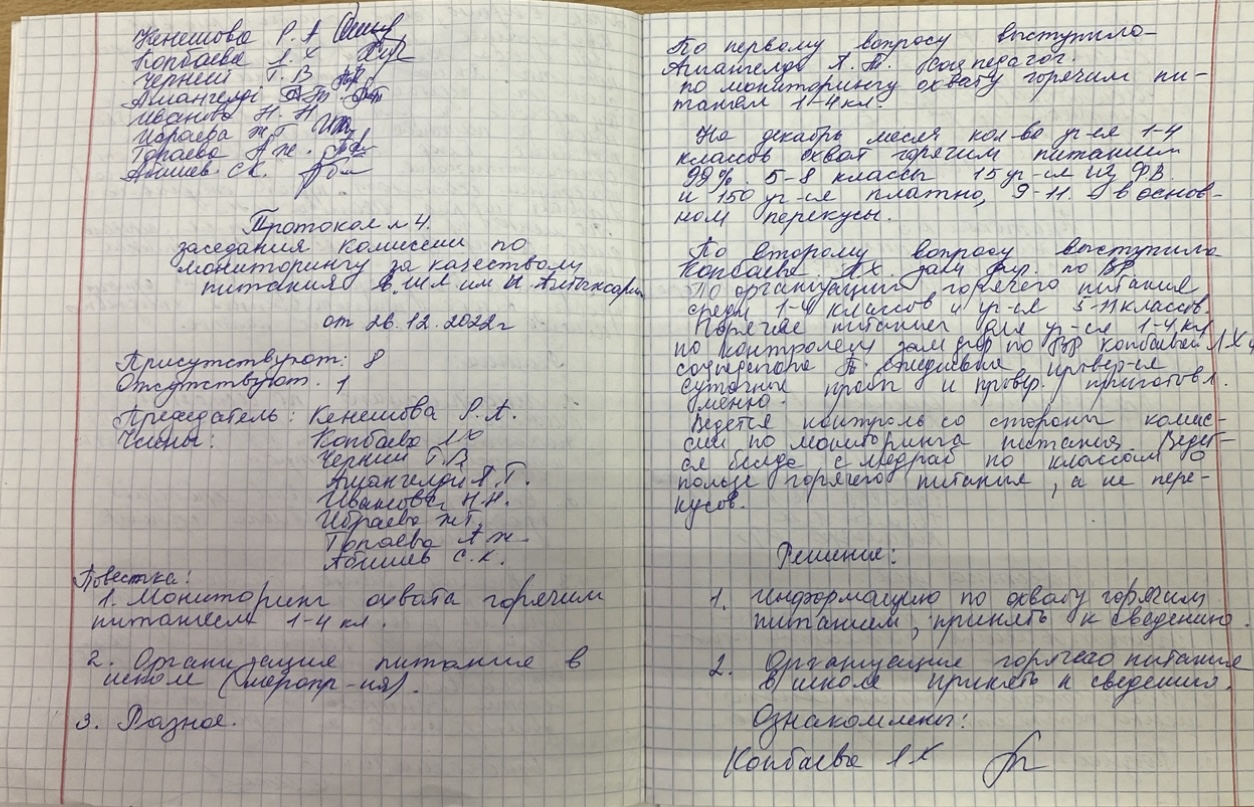 Кенешова Р. А
Копбаева Л. Х
Черний Т. В
Амангелді А Т
Иванова Н. Н
Ибраева Ж Т
Тораева А Ж.
Абишев С К.
Протокол №4.
заседания комиссии по
мониторингу за качеством
питания в шл. им И Алтынсарин
от 26.12.2022г
Присутствуют: 8
Отсутствуют. 1
Председатель: Кенешова Р. А.
Члены: Копбаева
Черний Т. В
Амангелди А. Т.
Иванова Н. Н.
Ибраева ЖТ.
Тораева А Ж
Абишев С. К.
Повестка:
1. Мониторинг охвата горячим
питанием 1-4 кл.
2. Организация питание в
школе (меропр-ия).
3. Разное.
По первому вопросу выступила
Амангелди А. Т. соц педагог.
по мониторингу охвату горячим пи-
танием 1-4 кл.
На декабрь месяц кол-во уч-ся 1-4
классов охват горячим питанием
99%. 5-8 классы 15 уч-ся из ФВ
и 150 уч-ся платно, 9-11. в основ-
ном перекусы.
По второму вопросу выступила
Копбаева Л.Х. зам дир. по ВР.
По организации горячего питания
среди 1-4 классов и уч-ся 5-11 классов.
Горячее питание для уч-ся 1-4 кл
по контролем зам дир по ВР Копбаевой Л Х и
соцпедагога Т. ежедневно провер-ся
суточный проб и провер. приготовл.
меню.
Ведется контроль со стороны комис-
сии по мониторинга питания. Ведет-
ся беседа с медраб по классам о
пользе горячего питание, а не пере-
кусов.
Решение:
1. Информацию по охвату горячим
питанием, принять к сведению.
2. Организацию горячего питание
в школе принять к сведению.
Ознакомлены:
Копбаева Л Х